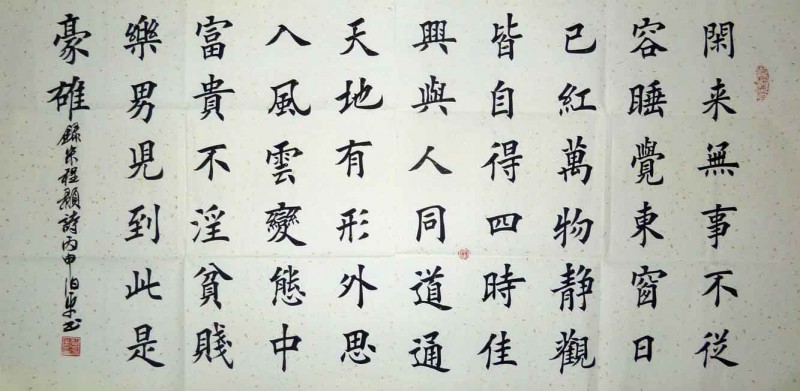 閑来無事不従
容睡覺東窗日
已紅萬物静觀
皆自得四時佳
興與人同道通
天地有形外思
入風雲變態中
富貴不淫貧賤
樂男児到此是
豪雄
錄宋程顥詩丙申